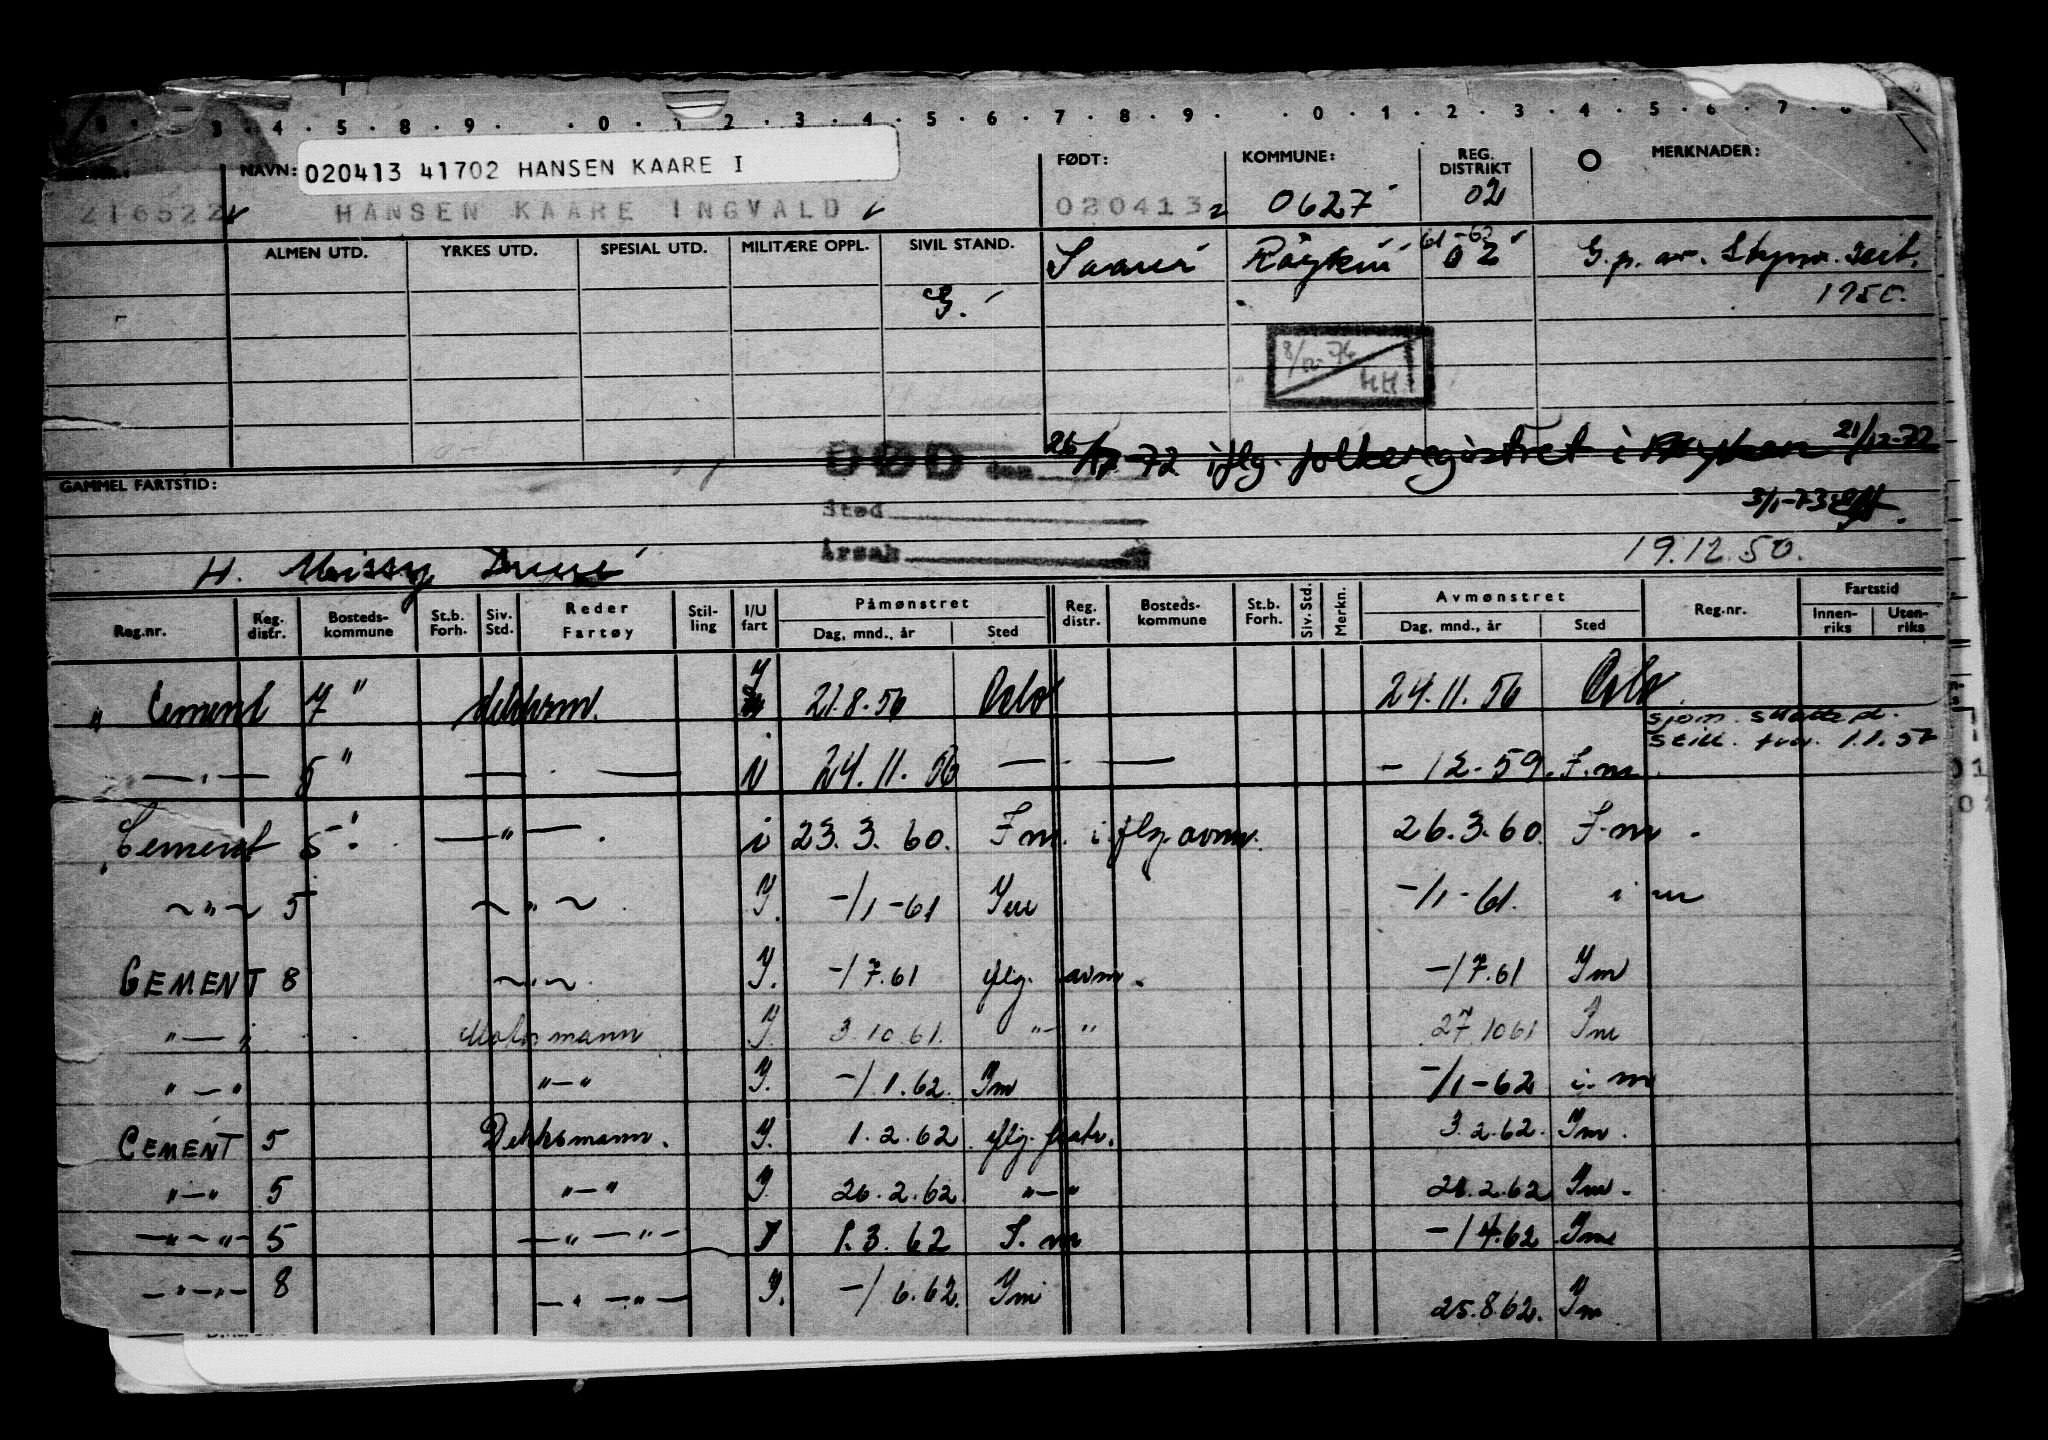 3 . 4 . 5 . 8 . 9 . . 0 . 1 2 . 3 . 4 . 5 . 6 . 7 . 8 . 9 . . 0 . 1 . 2 . 3 . 4 . 5 . 6 . 7 .
NAVN: 020413 41702 HANSEN KAARE I FØDT: KOMMUNE: REG. DISTRIKT MERKNADER:
216522 HANSEN KAARE INGVALD 020413 0627 02
ALMEN UTD. YRKES UTD. SPESIAL UTD. MILITÆRE OPPL. SIVIL STAND. 61-62 02 G.p. av.
G. 1950.
8/12-74
HH.
DØD den 26/12-72 iflg. folkeregistret i Røyken 21/12-72
GAMMEL FARTSTID:
Sted 3/1-73
Årsak 19.12.50.
H.
Reg.nr. Reg. distr. Bosteds- kommune St.b. Forh. Siv. Std. Reder Fartøy Stil- ling I/U fart Påmønstret Dag, mnd., år Sted Reg. distr. Bosteds- kommune St.b. Forh. Siv. Std. Merkn. Avmønstret Dag, mnd., år Sted Reg.nr. Fartstid Innen- riks Uten- riks
" Cement 7 " dekksm. 21.8.56 Oslo 24.11.56 Oslo
sjøm.
1.1.57
— " — 5 " — . — 24.11.56 — . — - 12-59. I.m.
Cement 5 " — " — . i 23.3.60. I m. iflg. avm. 26.3.60. I.m.
~ " ~ 5 ~ " ~ Y. -/1-61 Im -/1-61. i m
CEMENT 8 ~ . ~ Y. -/7.61 iflg. avm. -/7.61 Im
" — " Motormann Y. 3.10.61. " — " 27.10 61 Im
" — " " — " Y. -/1.62. Im -/1-62 i. m
CEMENT 5 Dekksmann. Y. 1.2.62. iflg. 3.2.62. Im.
" — " 5 " — " Y. 26.2.62. " — " 28.2.62 Im.
— " — " — 5 — " — " — 1.3.62 I. m -/4.62 Im
— " — " — 8 — " — " — Y. -/6.62. Im 25.8.62. Im